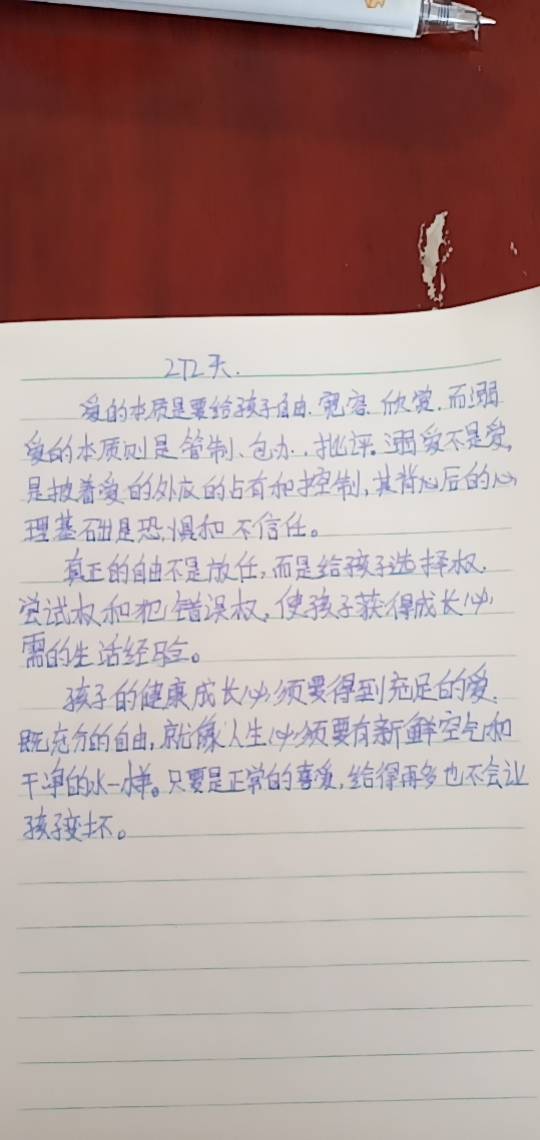 272天.
爱的本质是要给孩子自由、宽容、欣赏,而溺
爱的本质则是管制、包办、批评。溺爱不是爱,
是披着爱的外衣的占有和控制,其背心后的心
理基础是恐惧和不信任。
真正的自由不是放任,而是给孩子选择权、
尝试权和犯错误权,使孩子获得成长必
需的生活经验。
孩子的健康成长必须要得到充足的爱,
既充分的自由,就像人生必须要有新鲜空气和
干净的水一样。只要是正常的喜爱,给得再多也不会让
孩子变坏。